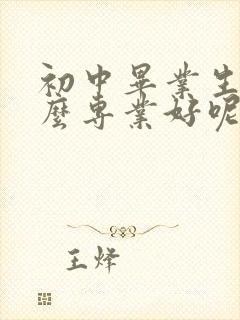 初中畢業生
麼專業好呢
王烽